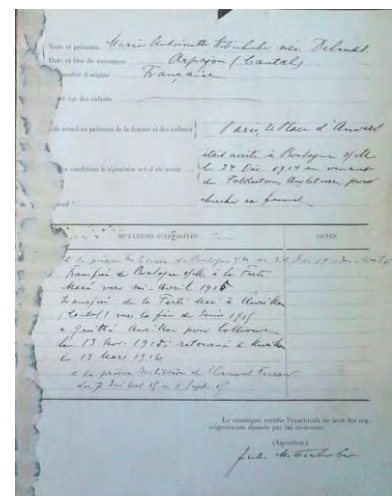 Nom et prénoms Marie Antoinette née Delmas
Date et lieu de naissance Arpajon (Cantal)
nalité d'origine Française
et âge des enfants
actuel ou présumé de la femme et des enfants Paris, 4 Place d'Anvers
conditions le signataire a-t-il été arrêté était arrêté à Boulogne s/M
le 24 Déc 1914 en venant
de Folkestone, Angleterre, pour
chercher sa femme
MUTATIONS SUCCESSIVES DATES
à la prison militaire de Boulogne s/M du 24 Déc 14
transféré de Boulogne s/M à la Ferté
Macé vers mi-avril 1915
transféré de la Ferté Macé à Aurillac
(Cantal) vers la fin de Juin 1915
a quitté Aurillac pour
le 13 Nov. 1915; retourné à Aurillac
le 13 Mars 1916
à la prison militaire de Clermont Ferrand
du 7 Juillet 15 - 2 Sept 15
Le soussigné certifie l'exactitude de tous les ren-
seignements donnés par lui ci-dessus.
(Signature)